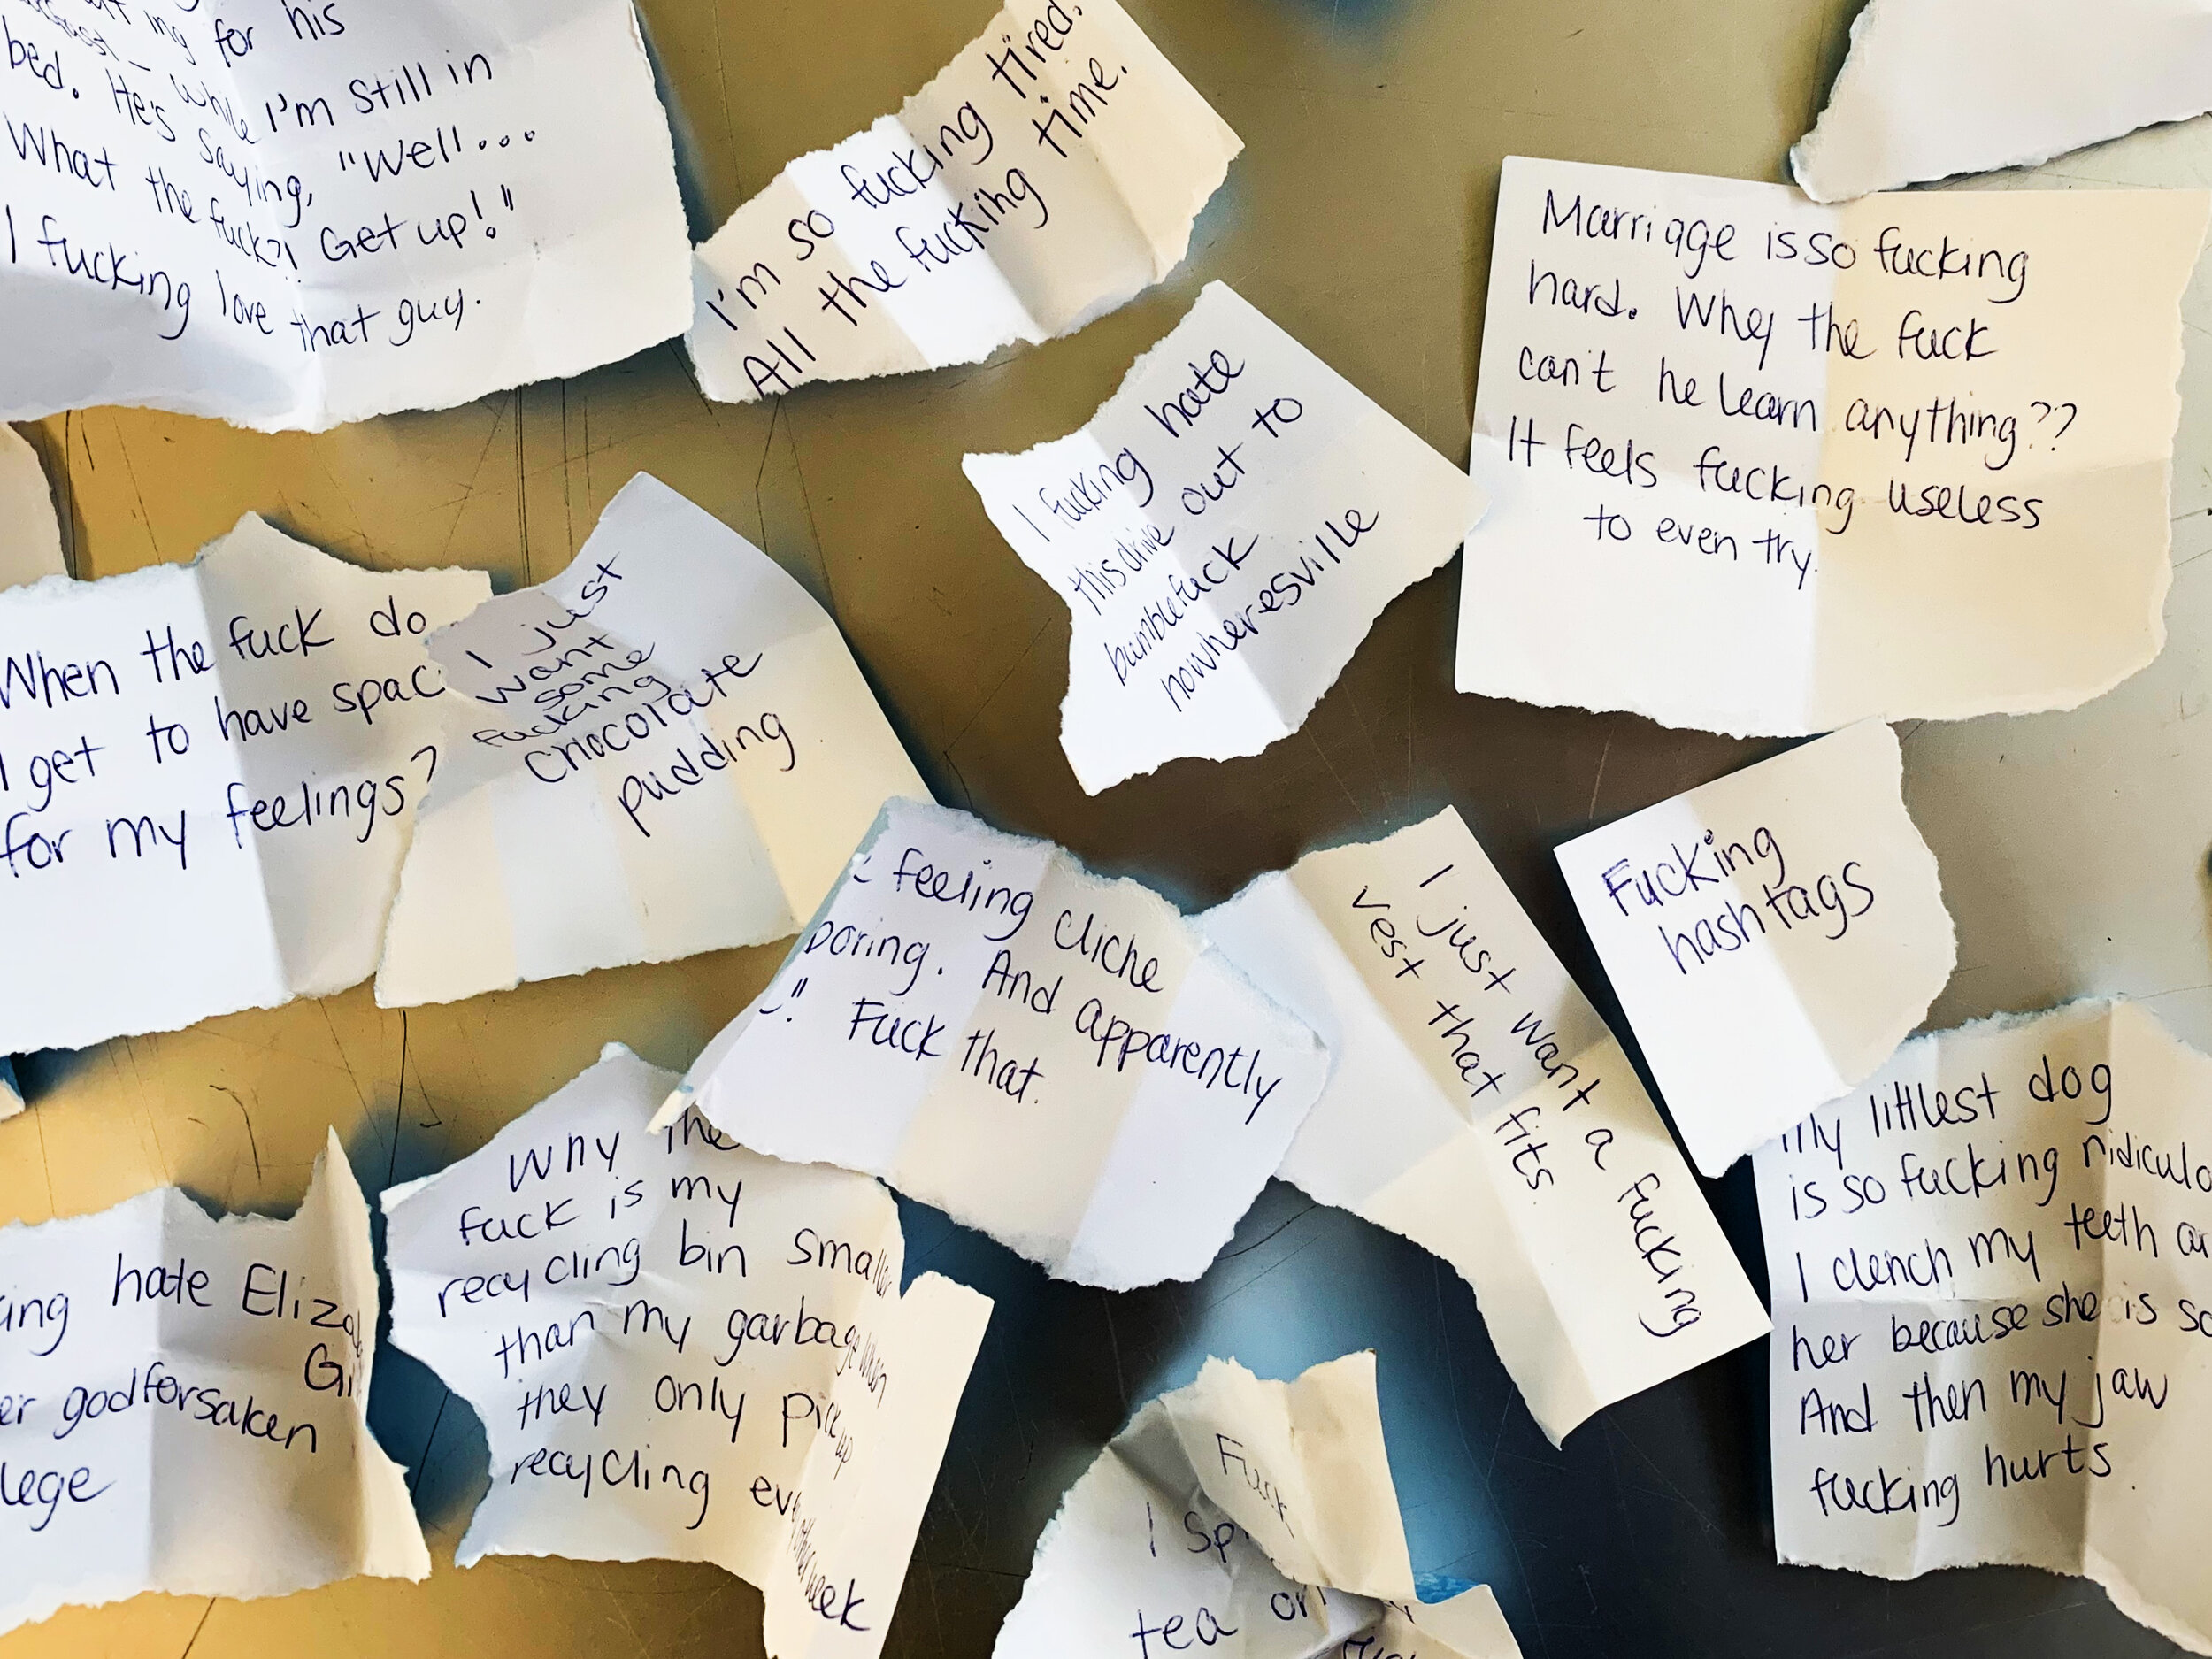 ing for his
bed. He's while I'm still in
What the fuck?! saying, "Well...
Get up!"
I fucking love that guy.
I'm so fucking tired.
All the fucking time.
Marriage is so fucking
hard. Whey the fuck
can't he learn anything??
It feels fucking useless
to even try.
I fucking hate
this drive out to
bumblefuck
nowheresville
When the fuck do
I get to have spac
for my feelings?
I just
want
some
fucking
chocolate
pudding
feeling cliche
boring. And apparently
" Fuck that.
I just want a fucking
vest that fits.
Fucking
hashtags
My littlest dog
is so fucking ridiculo
I clench my teeth
her because she is so
And then my jaw
fucking hurts
ing hate Eliza
Gi
er godforsaken
lege
Why the
fuck is my
recycling bin smaller
than my garbage when
they only pick up
recycling every other week
Fuck
I sp
tea on